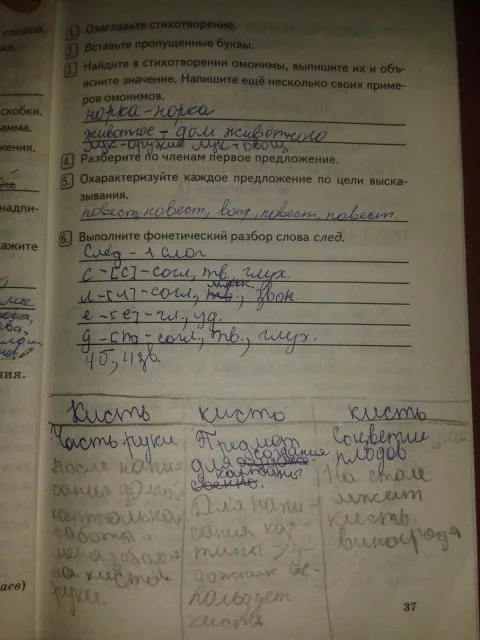 словов.
1. Озаглавьте стихотворение.
2. Вставьте пропущенные буквы.
3. Найдите в стихотворении омонимы, выпишите их и объ-
ясните значение. Напишите ещё несколько своих приме-
ров омонимов.
норка - норка
животное - дом животного
лук-оружие лук-овощ
4. Разберите по членам первое предложение.
5. Охарактеризуйте каждое предложение по цели выска-
зывания.
повест, повест, вопр, повест, повест.
6. Выполните фонетический разбор слова след.
След - 1 слог
с - [с] - согл, тв, глух.
мягк.
л - [л'] - согл, тв., звон.
е - [е] - гл, уд.
д - [т] - согл, тв., глух.
4б, 4зв.
скобки.
рамма.
жения.
надпи-
кажите
ния.
аев)
Кисть кисть кисть
Часть руки
После напи-
сания долгой
контрольной
работы у
меня устала
кисть
руки.
Предмет
для создания
картины
Для напи-
сания кар-
тины ху-
дожник ис-
пользует
кисть
Соцветие
плодов
На столе
лежит
кисть
винограда
37